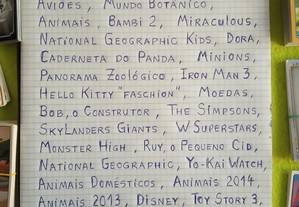 Aviões, Mundo Botânico,
Animais, Bambi 2, Miraculous,
National Geographic Kids, Dora,
Caderneta do Panda, Minions,
Panorama Zoológico, Iron Man 3,
Hello Kitty "Faschion", Moedas,
Bob, o Construtor, The Simpsons,
SkyLanders Giants, W Superstars,
Monster High, Ruy, o Pequeno Cid,
National Geographic, Yo-Kai Watch,
Animais Domésticos, Animais 2014,
Animais 2013, Disney, Toy Story 3,